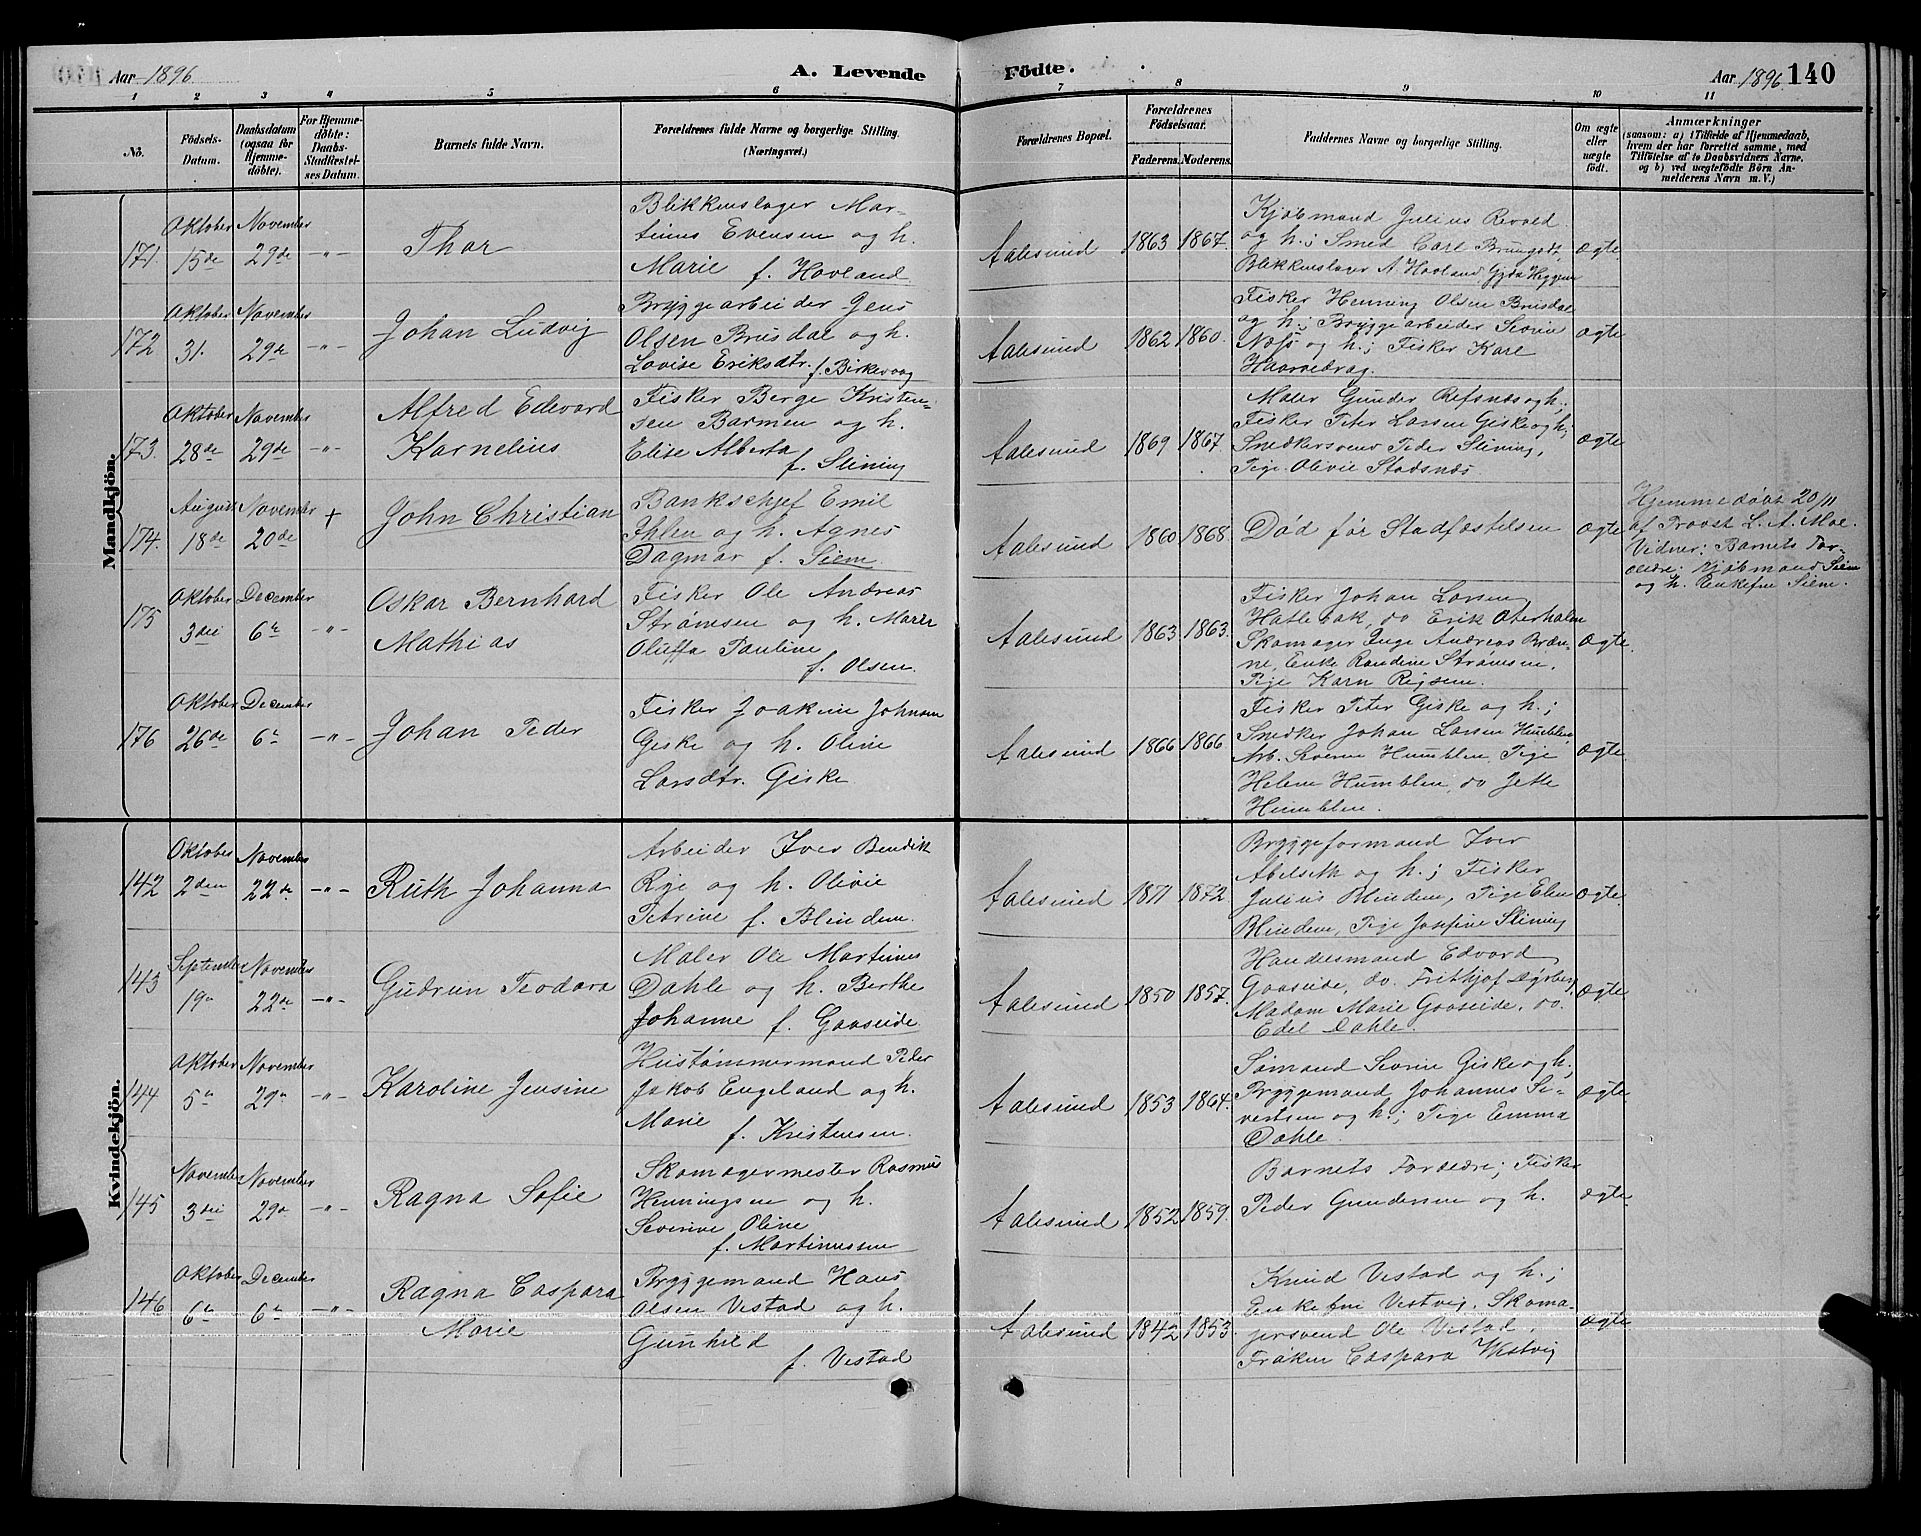 Aar 1896
A. Levende
Födte.
Aar 1896 140
1 2 3 4 5 6 7 8 9 10 11
No.
Födsels-
Datum.
Daabsdatum
(ogsaa for
Hjemme-
döbte).
For Hjemme-
döbte:
Daabs-
Stadfæstel-
ses Datum.
Barnets fulde Navn.
Forældrenes fulde Navne og borgerlige Stilling.
(Næringsvei.)
Forældrenes Bopæl.
Forældrenes
Födselsaar.
Faderens. Moderens.
Faddernes Navne og borgerlige Stilling.
Om ægte
eller
uægte
födt.
Anmærkninger
(saasom: a) i Tilfælde af Hjemmedaab,
hvem der har forrettet samme, med
Tilföielse af to Daabsvidners Navne.
og b) ved uægtefödte Börn An-
melderens Navn m. V.)
Mandkjön.
171. Oktober 15de November 29de -"-
Thor
Blikkenslager Mar-
tinus Evensen og h.
Marie f. Hovland
Aalesund 1863 1867.
Kjøbmand Julius Revold
og h.; Smed Carl
Blikkenslager A Hovland,
ægte
172 Oktober 31. November 29de -"-
Johan Ludvig
Bryggearbeider Jens
Olsen Brusdal og h.
Lovise Eriksdtr. f. Birkevaag
Aalesund 1862 1860.
Fisker Henning Olsen Brusdal
og h.; Bryggearbeider Severin
Næss og h.; Fisker Karl
ægte
173. Oktober 28de November 29de -"-
Alfred Edvard
Kornelius
Fisker Berge Kristen-
sen Barmen og h.
Elise Alberta
f. Slining
Aalesund 1869 1867.
Maler Gunder Refsnæs og h.;
Fisker Peter Larsen Giske og h;
Snedkersvend Peder Slining,
Pige Olivie Stadsnæs
ægte
174. August 18de November 20de +
John Christian
Bankschef Emil
Ihlen og h. Agnes
Dagmar f. Siem.
Aalesund 1860 1868.
Død før Stadfæstelsen
ægte
Hjemmedøbt 20/11
af Provst L. A. Moe.
Vidner: Barnets For-
ældre: Kjøbmand Siem
og h. Enkefru Siem.
175 Oktober 3die December 6te -"-
Oskar Bernhard
Mathias
Fisker Ole Andreas
Strømsen og h. Maren
Oluffa Pauline
f. Olsen
Aalesund 1863 1863.
Fisker Johan Larsen
Hatlebak, do Erik Oterholm
Skomager Inge Andreas Bræn-
ne, Enke Randine Strømsen,
Pige Karn
ægte.
176 Oktober 26de December 6te -"-
Johan Peder
Fisker Joakim Johnsen
Giske og h. Oline
Larsdtr. Giske
Aalesund 1866 1866
Fisker Peter Giske og h.;
Snedker Johan Larsen Humblen,
Arb. Severin Humblen, Pige
Helene Humblen, do Jette
Humblen.
ægte.
Kvindekjön.
142 Oktober 2den November 22de -"-
Ruth Johanna
Arbeider Iver Bendik
Rye og h. Olivie
Petrine f. Blindem.
Aalesund 1871 1872.
Bryggeformand Iver
Abelseth og h.; Fisker
Julius Blindem, Pige Elen
Blindem, Pige Josefine Slining
ægte.
143 September 19de November 22de -"-
Gudrun Teodora
Maler Ole Martinus
Dahle og h. Berthe
Johanne f. Gaaseide
Aalesund 1850 1857.
Handelsmand Edvard
Gaaseide, do. Frithjof
Madam Marie Gaaseide, do.
Edel Dahle.
ægte
144 Oktober 5te November 29de -"-
Karoline Jensine
Hustømmermand Peder
Jakob Engeland og h.
Marie
f. Kristensen.
Aalesund 1853 1864.
Sømand Severin Giske og h.;
Bryggemand Johannes Si-
vertsen og h.; Pige Emma
Dahle.
ægte
145 November 3die November 29de -"-
Ragna Sofie
Skomagermester Rasmus
Henningsen og h.
Severine Oline
f. Martinussen
Aalesund 1852 1859.
Barnets Forældre; Fisker
Peder Gundersen og h.
ægte
146 Oktober 6te December 6te -"-
Ragna Caspara
Marie
Bryggemand Hans
Olsen Vestad og h.
Gunhild
f. Vestad
Aalesund 1842 1853.
Knud Vestad og h.;
Enkefru Vestvig, Skoma-
gersvend Ole Vestad,
Frøken Caspara Westvig
ægte